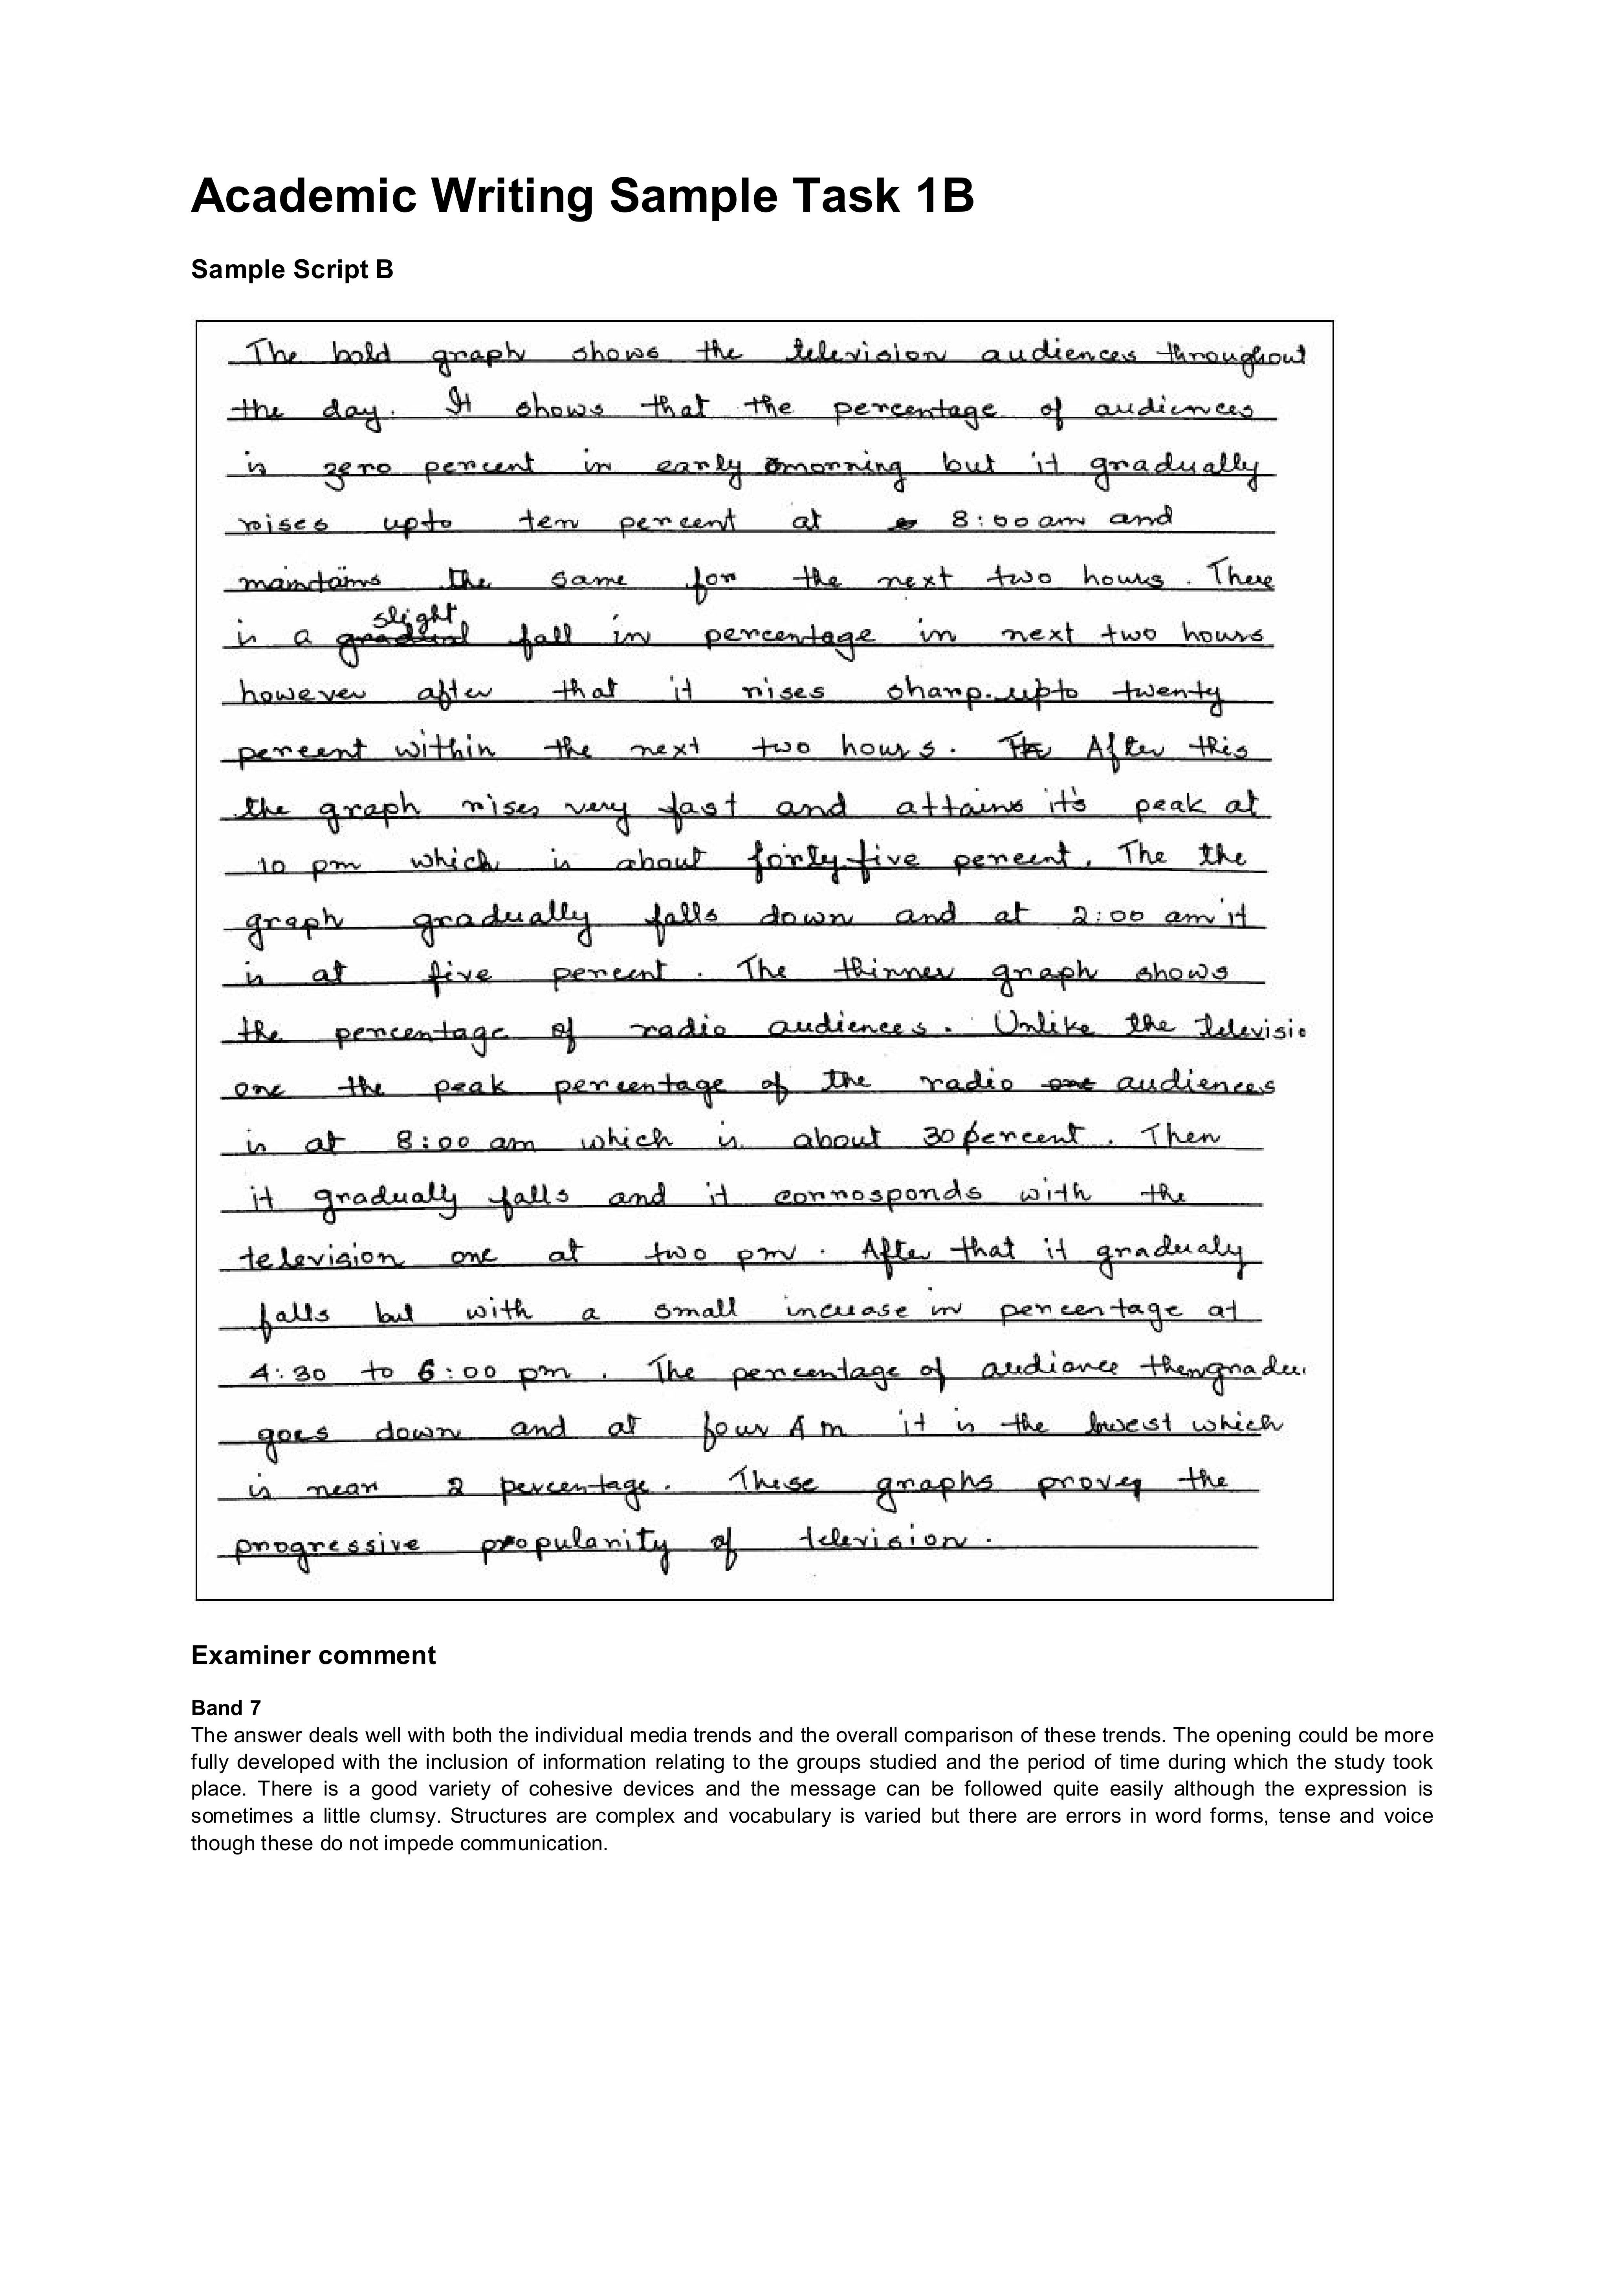 Academic Writing Sample Task 1B
Sample Script B
The bold graph shows the television audiences throughout
the day. It shows that the percentage of audiences
is zero percent in early morning but it gradually
rises upto ten percent at 8:00 am and
maintains the same for the next two hours. There
is a slight fall in percentage in next two hours
however after that it rises sharp upto twenty
percent within the next two hours. After this
the graph rises very fast and attains it's peak at
10 pm which is about forty five percent. The the
graph gradually falls down and at 2:00 am it
is at five percent. The thinner graph shows
the percentage of radio audiences. Unlike the televisio
one the peak percentage of the radio audiences
is at 8:00 am which is about 30 percent. Then
it gradually falls and it corrosponds with the
television one at two pm. After that it gradualy
falls but with a small increase in percentage at
4:30 to 6:00 pm. The percentage of audiance then gradu
goes down and at four Am it is the lowest which
is near 2 percentage. These graphs proves the
progressive propularity of television.
Examiner comment
Band 7
The answer deals well with both the individual media trends and the overall comparison of these trends. The opening could be more
fully developed with the inclusion of information relating to the groups studied and the period of time during which the study took
place. There is a good variety of cohesive devices and the message can be followed quite easily although the expression is
sometimes a little clumsy. Structures are complex and vocabulary is varied but there are errors in word forms, tense and voice
though these do not impede communication.